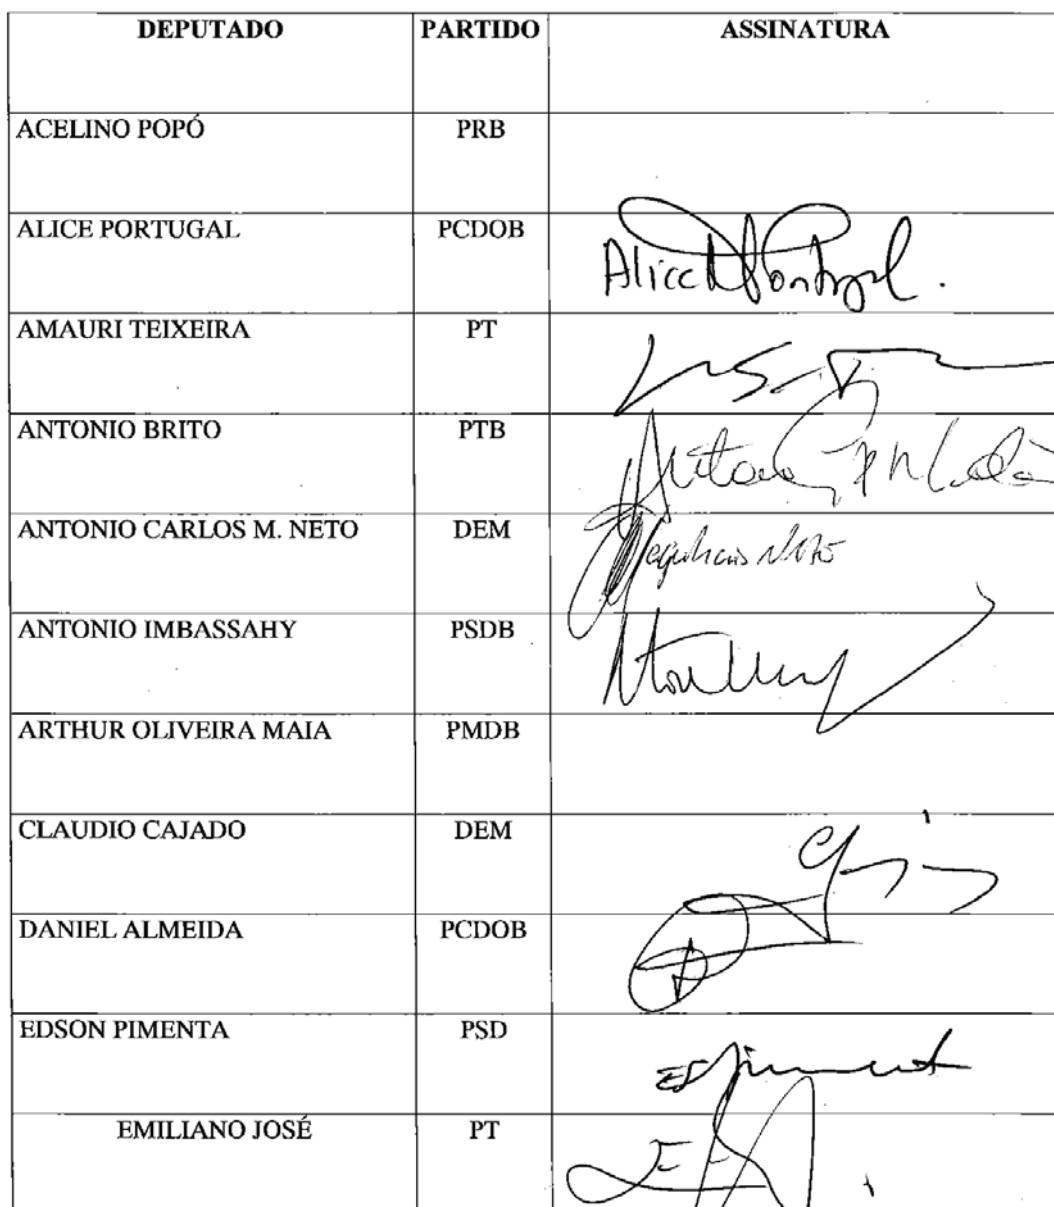 DEPUTADO PARTIDO ASSINATURA
ACELINO POPÓ PRB
ALICE PORTUGAL PCDOB Alice Portugal.
AMAURI TEIXEIRA PT
ANTONIO BRITO PTB Antonio
ANTONIO CARLOS M. NETO DEM
ANTONIO IMBASSAHY PSDB
ARTHUR OLIVEIRA MAIA PMDB
CLAUDIO CAJADO DEM
DANIEL ALMEIDA PCDOB
EDSON PIMENTA PSD
EMILIANO JOSÉ PT